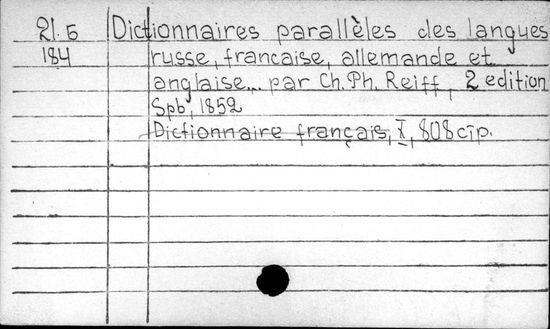 21.5 Dictionnaires parallèles des langues
184 russe, francaise, allemande et
anglaise... par Ch. Ph. Reiff, 2 edition
Spb, 1852
Dictionnaire français, X, 808 стр.